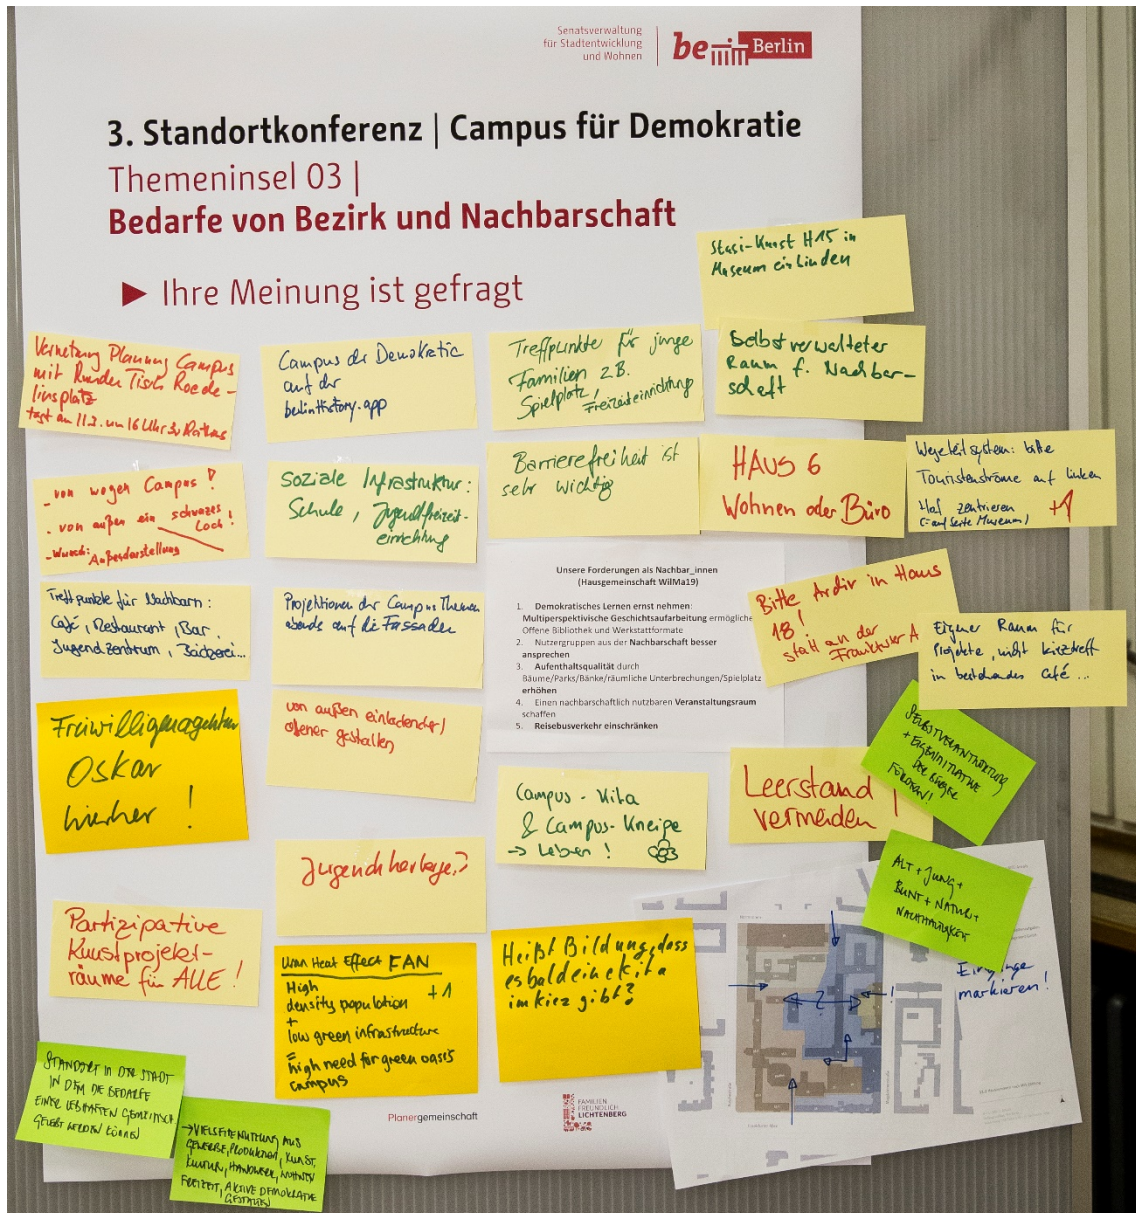 Senatsverwaltung
für Stadtentwicklung
und Wohnen
be Berlin
3. Standortkonferenz | Campus für Demokratie
Themeninsel 03 |
Bedarfe von Bezirk und Nachbarschaft
► Ihre Meinung ist gefragt
Stasi-Kunst H15 in
Museum einbinden
Vernetzung Planung Campus
mit Runder Tisch Roede-
liusplatz
tagt am 11.2. um 16 Uhr Rathaus
Campus der Demokratie
auf der
berlinHistory.app
Treffpunkte für junge
Familien z.B.
Spielplatz, Freizeiteinrichtung
Selbstverwalteter
Raum f. Nachbar-
schaft
- von wegen Campus!
- von außen ein schwarzes
Loch!
- Wunsch: Außendarstellung
Soziale Infrastruktur:
Schule, Jugendfreizeit-
einrichtung
Barrierefreiheit ist
sehr wichtig
HAUS 6
Wohnen oder Büro
Wegeleitsystem: bitte
Touristenströme auf linken
Hof zentrieren +1
(= auf Seite Museum)
Treffpunkte für Nachbarn:
Café, Restaurant, Bar,
Jugendzentrum, Bäckerei...
Projektionen der Campus Themen
abends auf die Fassaden
Unsere Forderungen als Nachbar_innen
(Hausgemeinschaft WilMa19)
1. Demokratisches Lernen ernst nehmen:
Multiperspektivische Geschichtsaufarbeitung ermögliche
Offene Bibliothek und Werkstattformate
2. Nutzergruppen aus der Nachbarschaft besser
ansprechen
3. Aufenthaltsqualität durch
Bäume/Parks/Bänke/räumliche Unterbrechungen/Spielplatz
erhöhen
4. Einen nachbarschaftlich nutzbaren Veranstaltungsraum
schaffen
5. Reisebusverkehr einschränken
Bitte Archiv in Haus
18!
statt an der
Frankfurter A
Eigener Raum für
Projekte, nicht Kieztreff
in bestehendes Café...
Freiwilligenagentur
Oskar
hierher!
von außen einladender/
offener gestalten
SELBSTVERANTWORTUNG
+ EIGENINITIATIVE
DER BÜRGER
FÖRDERN!
Campus-Kita
& Campus-Kneipe
→ Leben!
Leerstand
vermeiden!
Jugendherberge?
ALT + JUNG +
BUNT + NATUR +
NACHHALTIGKEIT
Partizipative
Kunstprojekt-
räume für ALLE!
Urban Heat Effect FAN
High
density population +1
+
low green infrastructure
=
high need for green oasis
campus
Heißt Bildung, dass
es bald eine Kita
im Kiez gibt?
Eingänge
markieren!
?
!
STANDORT IN DER STADT
IN DEM DIE BEDARFE
EINER LEBHAFTEN GEMEINSCH.
GELEBT WERDEN KÖNNEN
→ VIELSEITENUTZUNG AUS
GEWERBE, PRODUKTION, KUNST,
KULTUR, HANDWERK, WOHNEN
FREIZEIT, AKTIVE DEMOKRATIE
GESTALTEN
Planergemeinschaft
FAMILIEN
FREUNDLICH
LICHTENBERG